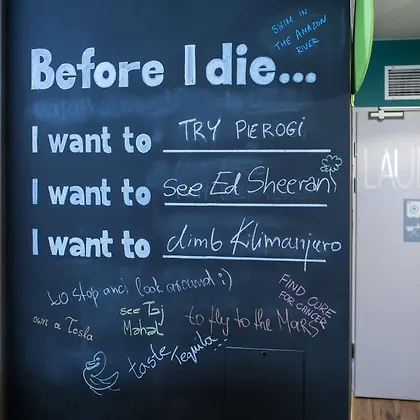 SWIM IN
THE AMAZON
RIVER
Before I die...
I want to TRY PIEROGI
I want to see Ed Sheeran
I want to climb Kilimanjaro
to stop and look around :)
FIND CURE
FOR CANCER
own a Tesla
see Taj
Mahal
to fly to the MARS
taste Tequila
LAU